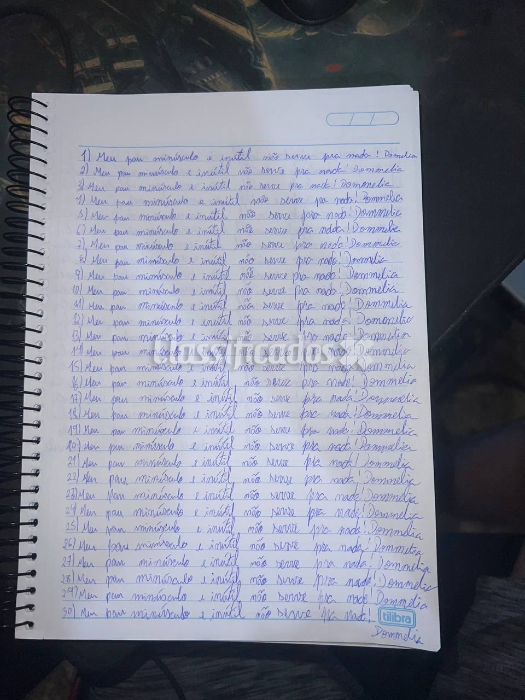 1) Meu pau minúsculo e inútil não serve pra nada! Dommelia
2) Meu pau minúsculo e inútil não serve pra nada! Dommelia
3) Meu pau minúsculo e inútil não serve pra nada! Dommelia
4) Meu pau minúsculo e inútil não serve pra nada! Dommelia
5) Meu pau minúsculo e inútil não serve pra nada! Dommelia
6) Meu pau minúsculo e inútil não serve pra nada! Dommelia
7) Meu pau minúsculo e inútil não serve pra nada! Dommelia
8) Meu pau minúsculo e inútil não serve pra nada! Dommelia
9) Meu pau minúsculo e inútil não serve pra nada! Dommelia
10) Meu pau minúsculo e inútil não serve pra nada! Dommelia
11) Meu pau minúsculo e inútil não serve pra nada! Dommelia
12) Meu pau minúsculo e inútil não serve pra nada! Dommelia
13) Meu pau minúsculo e inútil não serve pra nada! Dommelia
14) Meu pau minúsculo e inútil não serve pra nada! Dommelia
Classificados X
15) Meu pau minúsculo e inútil não serve pra nada! Dommelia
16) Meu pau minúsculo e inútil não serve pra nada! Dommelia
17) Meu pau minúsculo e inútil não serve pra nada! Dommelia
18) Meu pau minúsculo e inútil não serve pra nada! Dommelia
19) Meu pau minúsculo e inútil não serve pra nada! Dommelia
20) Meu pau minúsculo e inútil não serve pra nada! Dommelia
21) Meu pau minúsculo e inútil não serve pra nada! Dommelia
22) Meu pau minúsculo e inútil não serve pra nada! Dommelia
23) Meu pau minúsculo e inútil não serve pra nada! Dommelia
24) Meu pau minúsculo e inútil não serve pra nada! Dommelia
25) Meu pau minúsculo e inútil não serve pra nada! Dommelia
26) Meu pau minúsculo e inútil não serve pra nada! Dommelia
27) Meu pau minúsculo e inútil não serve pra nada! Dommelia
28) Meu pau minúsculo e inútil não serve pra nada! Dommelia
29) Meu pau minúsculo e inútil não serve pra nada! Dommelia
30) Meu pau minúsculo e inútil não serve pra nada!
tilibra
Dommelia